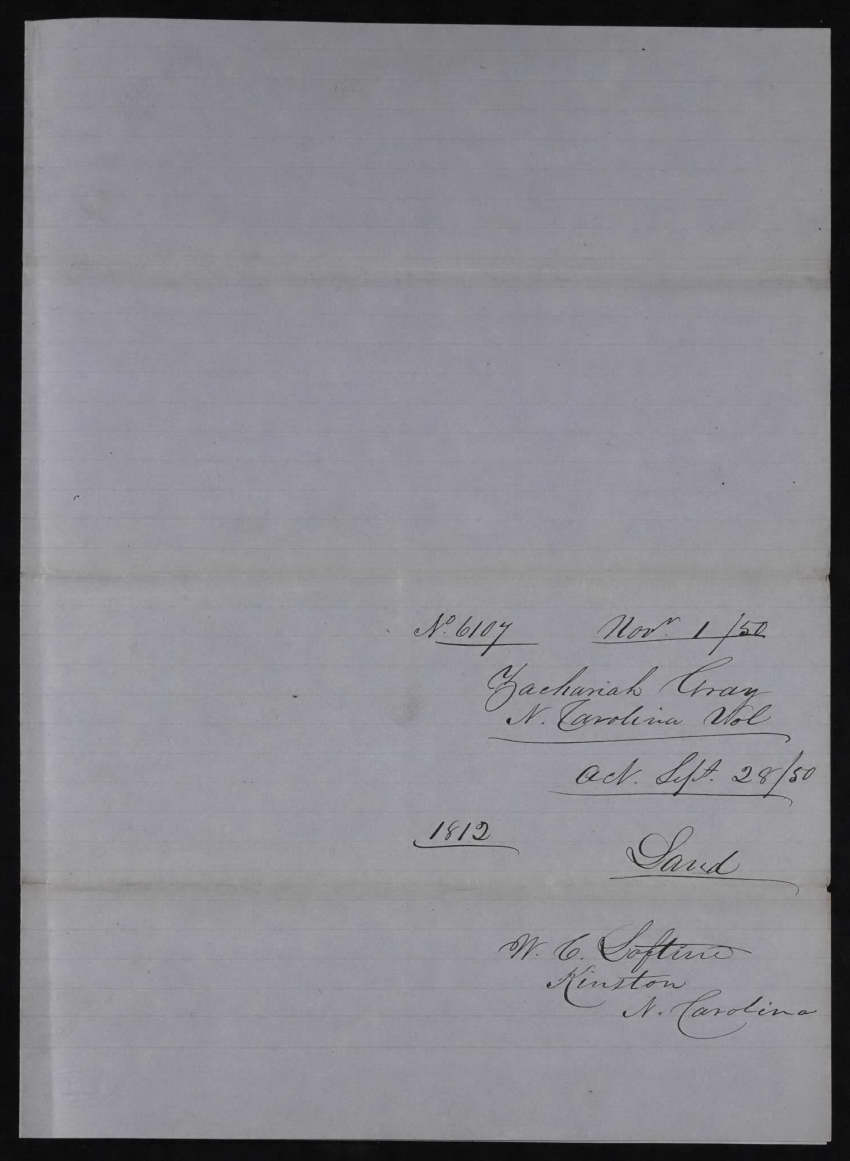 No. 6107 Novr. 1/50
Zachariah Gray
N. Carolina Vol
Act. Sept. 28/50
1812
Land
W. C. Loftin
Kinston
N. Carolina